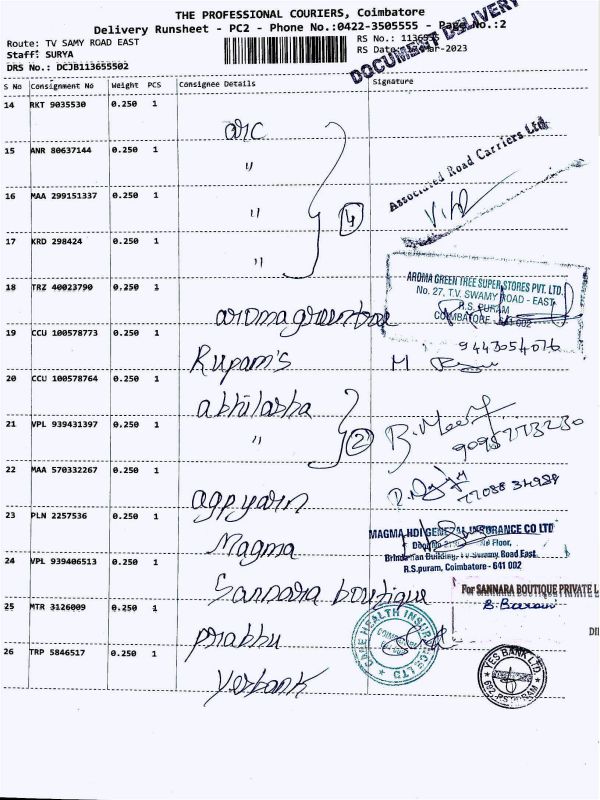 THE PROFESSIONAL COURIERS, Coimbatore
Delivery Runsheet - PC2 - Phone No.:0422-3505555 - Page No.:2
DOCUMENT DELIVERY
Route: TV SAMY ROAD EAST
RS No.:
Staff: SURYA
RS Date: Mar-2023
DRS No.: DCJB113655502
S No Consignment No Weight PCS Consignee Details Signature
14 RKT 9035530 0.250 1
arc
Associated Road Carriers Ltd
15 ANR 80637144 0.250 1
"
16 MAA 299151337 0.250 1
" 4
17 KRD 298424 0.250 1
"
18 TRZ 40023790 0.250 1
AROMA GREEN TREE SUPER STORES PVT. LTD.
No. 27, T.V. SWAMY ROAD - EAST
R.S. PURAM
COIMBATORE - 641 002
aromagreentree
19 CCU 100578773 0.250 1
9443054076
Rupam's
20 CCU 100578764 0.250 1
abhilasha
21 VPL 939431397 0.250 1
" 2
9095773230
22 MAA 570332267 0.250 1
77088 34988
23 PLN 2257536 0.250 1
MAGMA HDI GENERAL INSURANCE CO LTD
Floor,
Building, TV Swamy Road East
R.S.puram, Coimbatore - 641 002
Magma
24 VPL 939406513 0.250 1
For SANNARA BOUTIQUE PRIVATE L
Sannara boutique
25 MTR 3126009 0.250 1
CARE HEALTH INSURANCE LTD
prabhu
26 TRP 5846517 0.250 1
YES BANK LTD.
R.S. PURAM
Yesbank